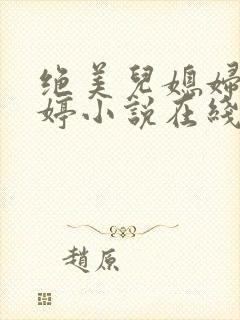 绝美兒媳婦
婷小說在綫
趙原